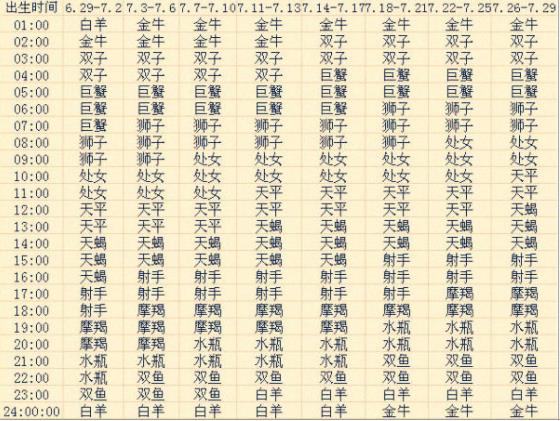 出生时间 6.29-7.2 7.3-7.6 7.7-7.10 7.11-7.13 7.14-7.17 7.18-7.21 7.22-7.25 7.26-7.29
01:00 白羊 金牛 金牛 金牛 金牛 金牛 金牛 金牛
02:00 金牛 金牛 金牛 金牛 双子 双子 双子 双子
03:00 双子 双子 双子 双子 双子 双子 双子 双子
04:00 双子 双子 双子 双子 巨蟹 巨蟹 巨蟹 巨蟹
05:00 巨蟹 巨蟹 巨蟹 巨蟹 巨蟹 巨蟹 巨蟹 巨蟹
06:00 巨蟹 巨蟹 巨蟹 巨蟹 巨蟹 狮子 狮子 狮子
07:00 巨蟹 狮子 狮子 狮子 狮子 狮子 狮子 狮子
08:00 狮子 狮子 狮子 狮子 狮子 狮子 处女 处女
09:00 狮子 狮子 处女 处女 处女 处女 处女 处女
10:00 处女 处女 处女 处女 处女 处女 处女 天平
11:00 处女 处女 处女 天平 天平 天平 天平 天平
12:00 天平 天平 天平 天平 天平 天平 天平 天蝎
13:00 天平 天平 天平 天蝎 天蝎 天蝎 天蝎 天蝎
14:00 天蝎 天蝎 天蝎 天蝎 天蝎 天蝎 天蝎 天蝎
15:00 天蝎 天蝎 天蝎 天蝎 天蝎 射手 射手 射手
16:00 天蝎 射手 射手 射手 射手 射手 射手 射手
17:00 射手 射手 射手 射手 射手 射手 摩羯 摩羯
18:00 射手 摩羯 摩羯 摩羯 摩羯 摩羯 摩羯 摩羯
19:00 摩羯 摩羯 摩羯 摩羯 摩羯 水瓶 水瓶 水瓶
20:00 摩羯 摩羯 水瓶 水瓶 水瓶 水瓶 水瓶 水瓶
21:00 水瓶 水瓶 水瓶 水瓶 水瓶 双鱼 双鱼 双鱼
22:00 水瓶 双鱼 双鱼 双鱼 双鱼 双鱼 双鱼 双鱼
23:00 双鱼 双鱼 双鱼 白羊 白羊 白羊 白羊 白羊
24:00:00 白羊 白羊 白羊 白羊 白羊 金牛 金牛 金牛